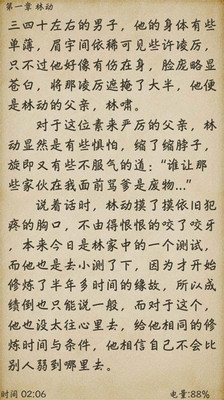 第一章 林动
三四十左右的男子，他的身体有些
单薄，眉宇间依稀可见些许凌厉，
只不过他好像有伤在身，脸庞略显
苍白，将那凌厉遮掩了大半，他便
是林动的父亲，林啸。
对于这位素来严厉的父亲，林
动显然是有些惧怕，缩了缩脖子，
旋即又有些不服气的道：“谁让那
些家伙在我面前骂爹是废物…”
说着话时，林动摸了摸依旧犯
疼的胸口，不由得恨恨的咬了咬牙
，本来今日是林家中的一个测试，
而他也是去小测了下，因为才开始
修炼了半年多时间的缘故，所以成
绩倒也只能说一般，而对于这个，
他也没太往心里去，给他相同的修
炼时间与条件，他相信自己不会比
别人弱到哪里去。
时间 02:06
电量:88%